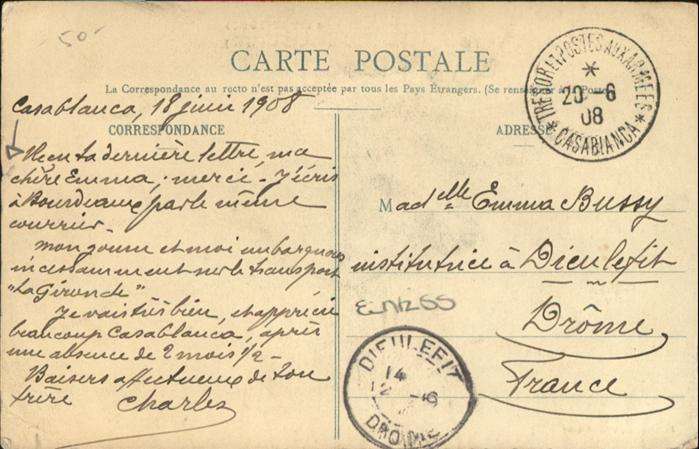 50-
CARTE POSTALE
La Correspondance au recto n'est pas acceptée par tous les Pays Étrangers. (Se renseigner à la Poste)
CORRESPONDANCE
ADRESSE
TRESOR ET POSTES AUX ARMEES
*
20-6
08
* CASABLANCA *
Casablanca, 18 juin 1908
Reçu ta dernière lettre, ma
chère Emma; merci. J'écris
à Bourdeaux par le même
courrier.
Mon zouave et moi embarquons
incessamment sur le transport
"La Gironde"
Je vais très bien, et apprécie
beaucoup Casablanca, après
une absence de 2 mois 1/2.
Baisers affectueux de ton
frère
Charles
Mad elle Emma Bussy
institutrice à Dieulefit
Drôme
France
DIEULEFIT
14
DROME